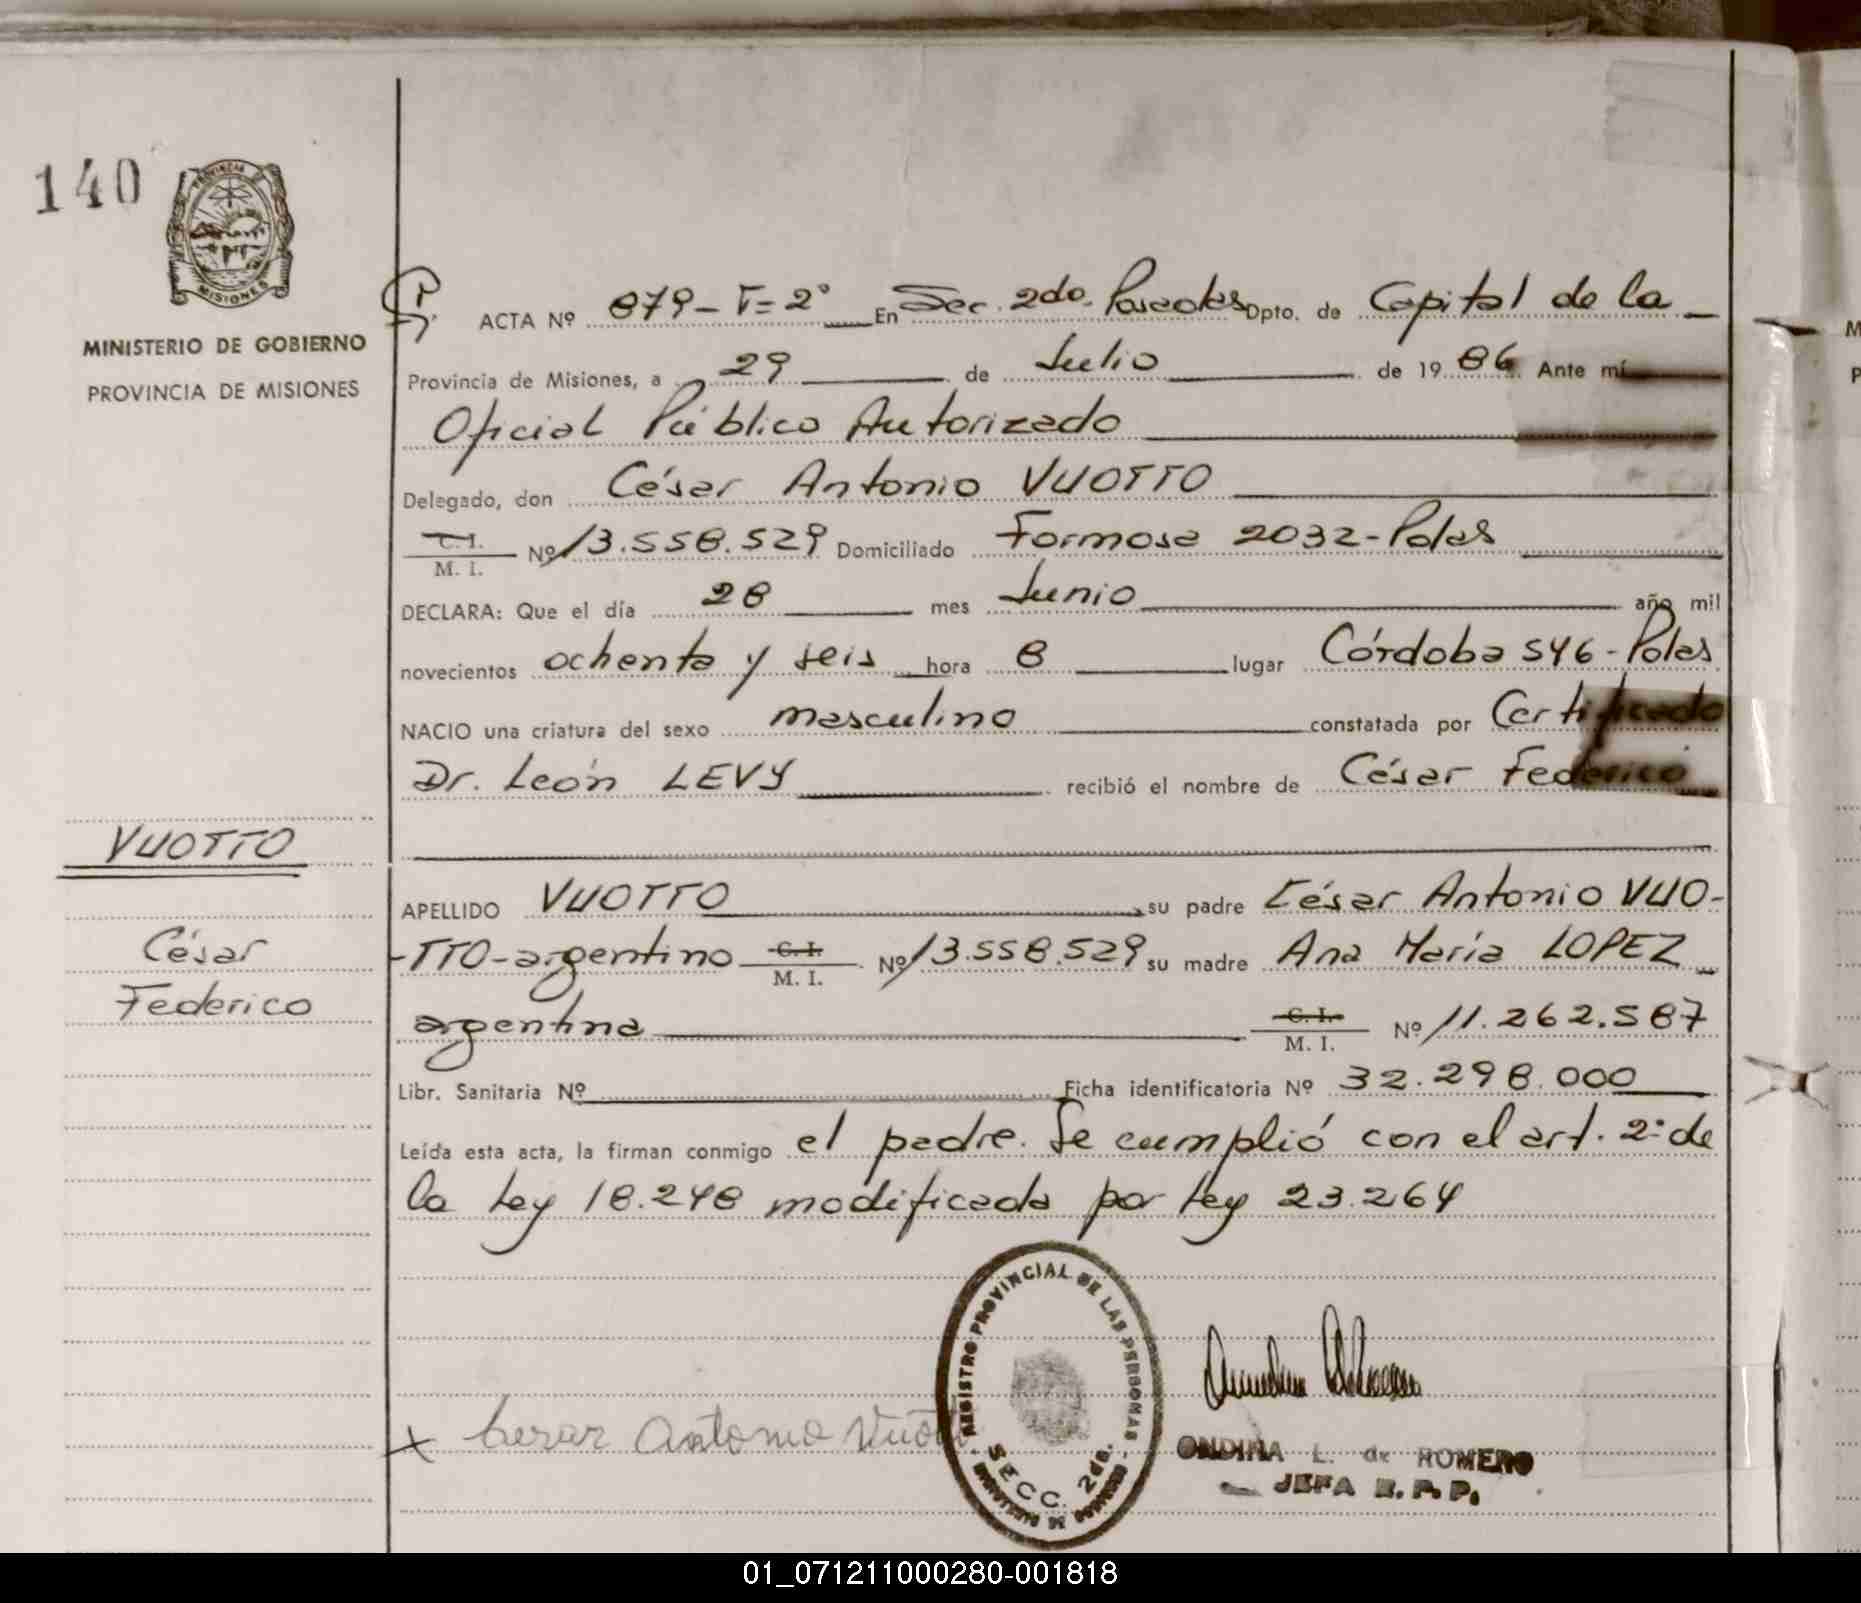 140
PROVINCIA DE
MISIONES
MINISTERIO DE GOBIERNO
PROVINCIA DE MISIONES
ACTA Nº 879-T=2º En Sec. 2da. Posadas Dpto. de Capital de la
Provincia de Misiones, a 29 de Julio de 1986 Ante mí
Oficial Público Autorizado
Delegado, don César Antonio VUOTTO
C. I.
M. I. Nº 13.558.529 Domiciliado Formosa 2032-Pdas
DECLARA: Que el día 28 mes Junio año mil
novecientos ochenta y seis hora 8 lugar Córdoba 546-Pdas
NACIO una criatura del sexo masculino constatada por Certificado
Dr. León LEVY recibió el nombre de César Federico
VUOTTO
César
Federico
APELLIDO VUOTTO, su padre César Antonio VUO-
-TTO-argentino C. I. M. I. Nº 13.558.529 su madre Ana María LOPEZ
argentina C. I. M. I. Nº 11.262.587
Libr. Sanitaria Nº Ficha identificatoria Nº 32.298.000
Leída esta acta, la firman conmigo el padre. Se cumplió con el art. 2º de
la Ley 18.248 modificada por Ley 23.264
REGISTRO PROVINCIAL DE LAS PERSONAS
SECC. 2da.
x Cesar Antonio Vuotto
ONDINA L. de ROMERO
JEFA R. P. P.
01_071211000280-001818